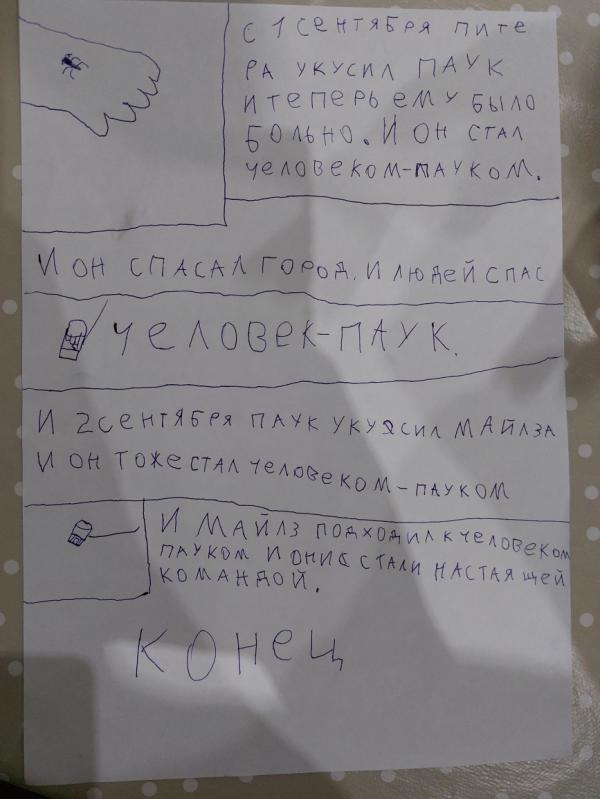 С 1 СЕНТЯБРЯ ПИТЕ
РА УКУСИЛ ПАУК
И ТЕПЕРЬ ЕМУ БЫЛО
БОЛЬНО. И ОН СТАЛ
ЧЕЛОВЕКОМ-ПАУКОМ.
И ОН СПАСАЛ ГОРОД. И ЛЮДЕЙ СПАС
ЧЕЛОВЕК-ПАУК.
И 2 СЕНТЯБРЯ ПАУК УКУСИЛ МАЙЛЗА
И ОН ТОЖЕ СТАЛ ЧЕЛОВЕКОМ-ПАУКОМ
И МАЙЛЗ ПОДХОДИЛ К ЧЕЛОВЕКОМ
ПАУКОМ И ОНИ СТАЛИ НАСТАЯЩЕЙ
КОМАНДОЙ.
КОНЕЦ